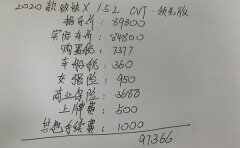 2020 款 X 1.5L CVT
指导价: 89800
实际车价: 84800
购置税: 7377
车船税: 360
交强险: 950
商业保险: 3688
上牌费: 500
手续费: 1000
97366